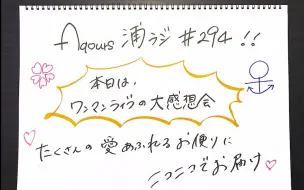 Aqours 浦ラジ #294 !!
本日は、
ワンマンライブの大感想会
たくさんの愛あふれるお便りに
ニコニコでお届け